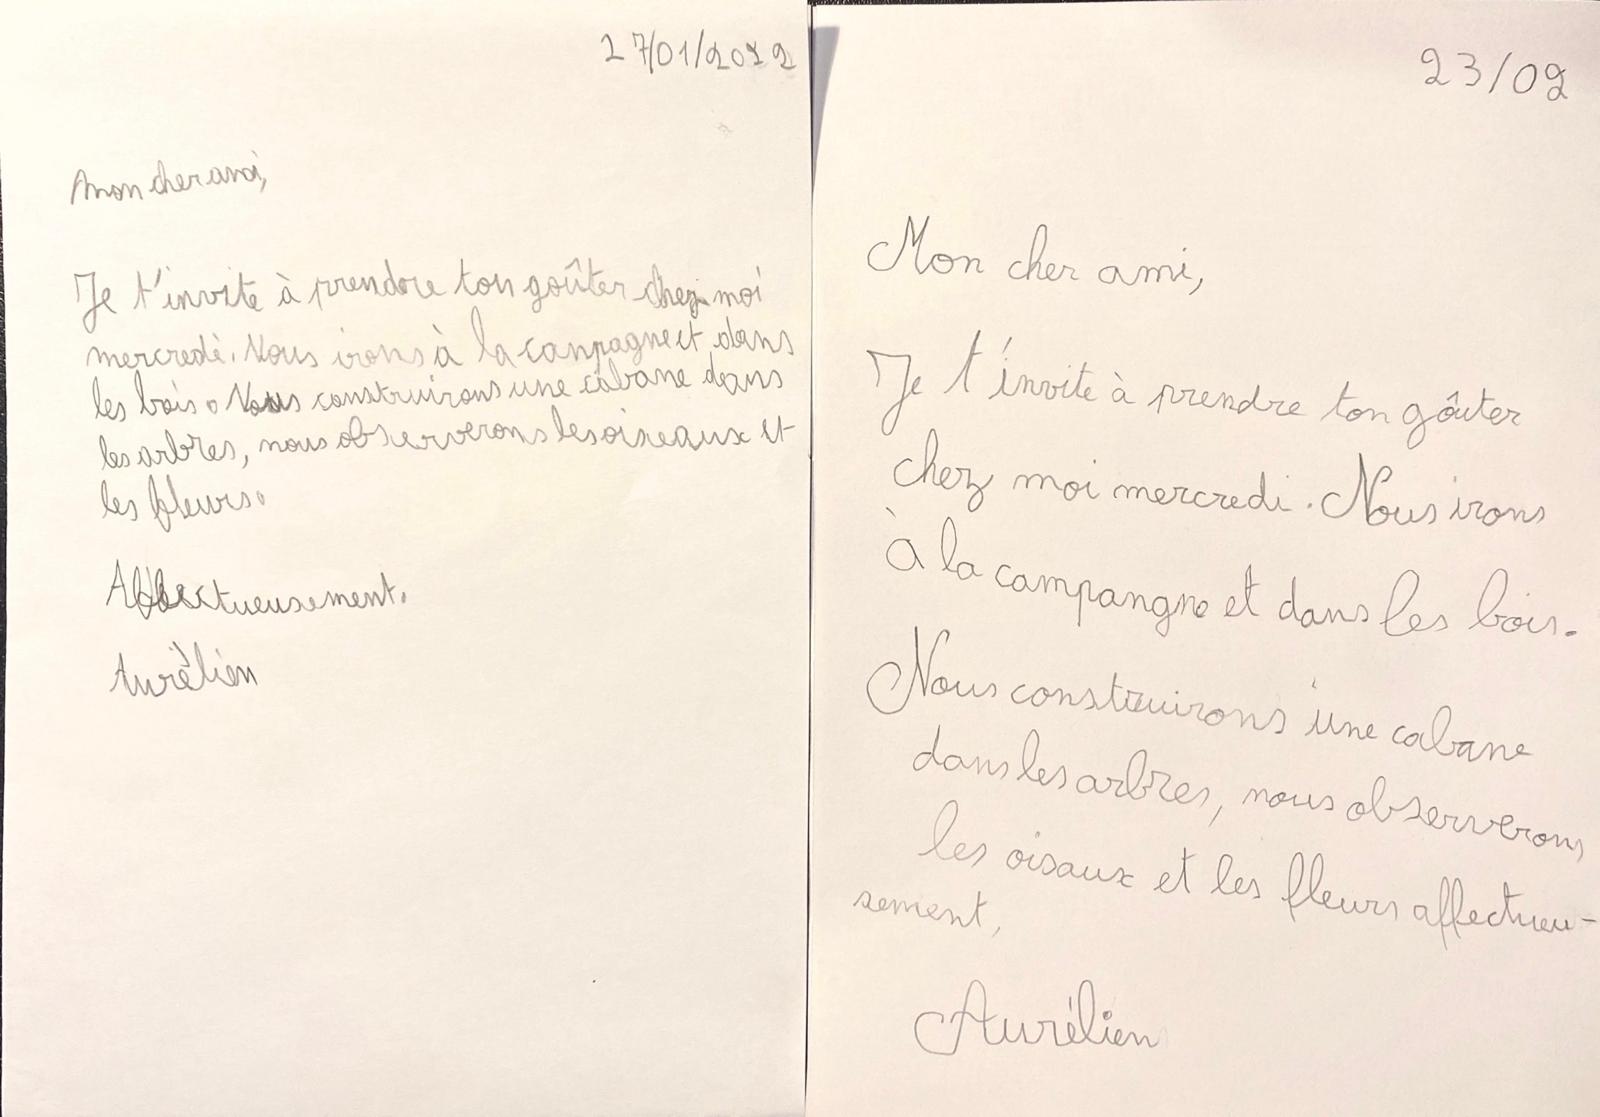 27/01/2022
Mon cher ami,
Je t'invite à prendre ton goûter chez moi
mercredi. Nous irons à la canpagne et dans
les bois. Nous construirons une cabane dans
les arbres, nous observerons les oiseaux et
les fleurs.
Affectueusement.
Aurélien
23/02
Mon cher ami,
Je t'invite à prendre ton goûter
chez moi mercredi. Nous irons
à la campangne et dans les bois.
Nous construirons une cabane
dans les arbres, nous observerons
les oisaux et les fleurs affectueu-
sement,
Aurélien